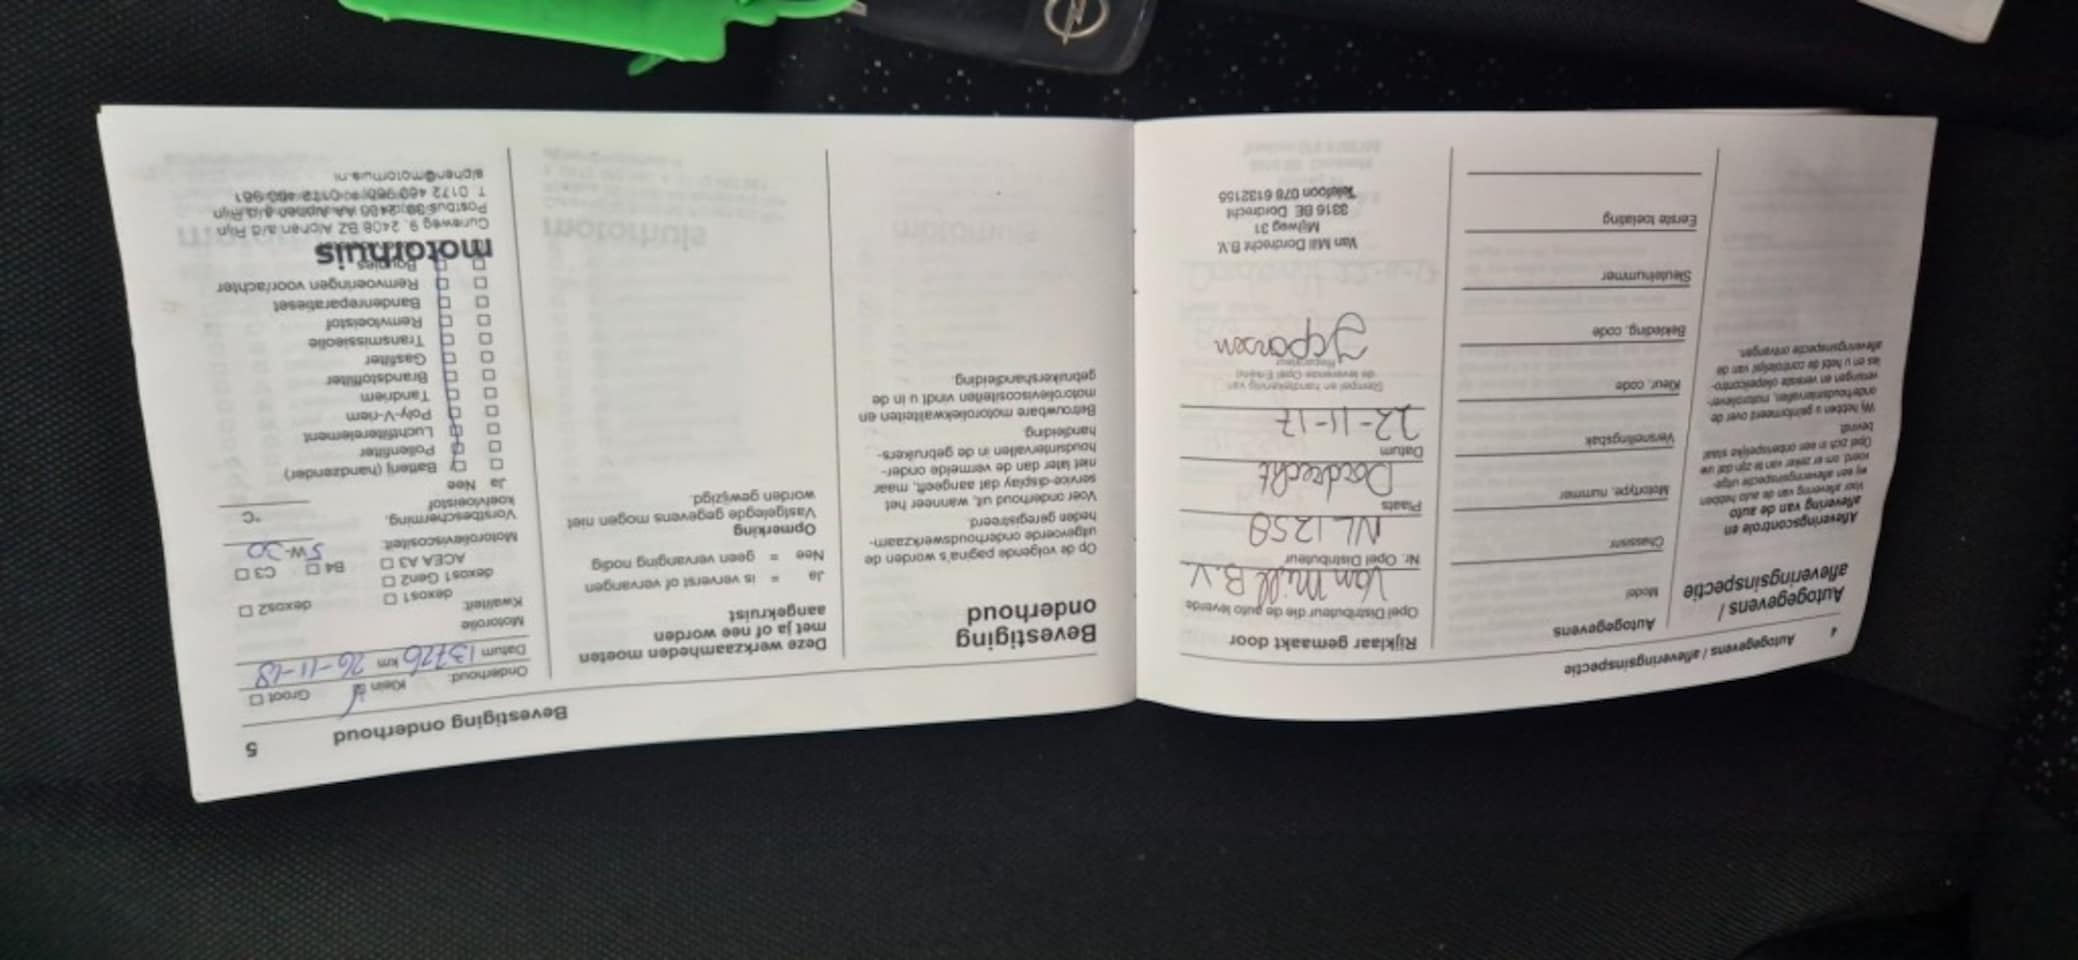 4 Autogegevens / afleveringsinspectie
Autogegevens /
afleveringsinspectie
Afleveringscontrole en
aflevering van de auto
Voor aflevering van de auto hebben
wij een afleveringsinspectie uitge-
voerd, om er zeker van te zijn dat uw
Opel zich in een onberispelijke staat
bevindt.
Wij hebben u geïnformeerd over de
onderhoudsintervallen, motoroliever-
versingen en vereiste oliepeilcontro-
les en u hebt de controlelijst van de
afleveringsinspectie ontvangen.
Autogegevens
Model
Chassisnr.
Motortype, nummer
Versnellingsbak
Kleur, code
Bekleding, code
Sleutelnummer
Eerste toelating
Rijklaar gemaakt door
Opel Distributeur die de auto leverde
Van Mill B.V.
Nr. Opel Distributeur
NL 1250
Plaats
Dordrecht
Datum
22-11-17
Stempel en handtekening van
de leverende Opel Erkend
Reparateur
Van Mill Dordrecht B.V.
Mijlweg 31
3316 BE Dordrecht
Telefoon 078 6132155
Bevestiging onderhoud 5
Bevestiging
onderhoud
Op de volgende pagina's worden de
uitgevoerde onderhoudswerkzaam-
heden geregistreerd.
Voer onderhoud uit, wanneer het
service-display dat aangeeft, maar
niet later dan de vermelde onder-
houdsintervallen in de gebruikers-
handleiding.
Betrouwbare motoroliekwaliteiten en
motorolieviscositeiten vindt u in de
gebruikershandleiding.
Deze werkzaamheden moeten
met ja of nee worden
aangekruist
Ja = is ververst of vervangen
Nee = geen vervanging nodig
Opmerking
Vastgelegde gegevens mogen niet
worden gewijzigd.
Onderhoud: Klein Groot
Datum 13726 km 26-11-18
Motorolie
Kwaliteit:
dexos1 dexos2
dexos1 Gen2
ACEA A3 B4 C3
Motorolieviscositeit: 5W-30
Vorstbescherming,
koelvloeistof °C
Ja Nee
Batterij (handzender)
Pollenfilter
Luchtfilterelement
Poly-V-riem
Tandriem
Brandstoffilter
Gasfilter
Transmissieolie
Remvloeistof
Bandenreparatieset
Remvoeringen voor/achter
Bougies
motorhuis
Curieweg 9, 2408 BZ Alphen a/d Rijn
alphen@motorhuis.nl